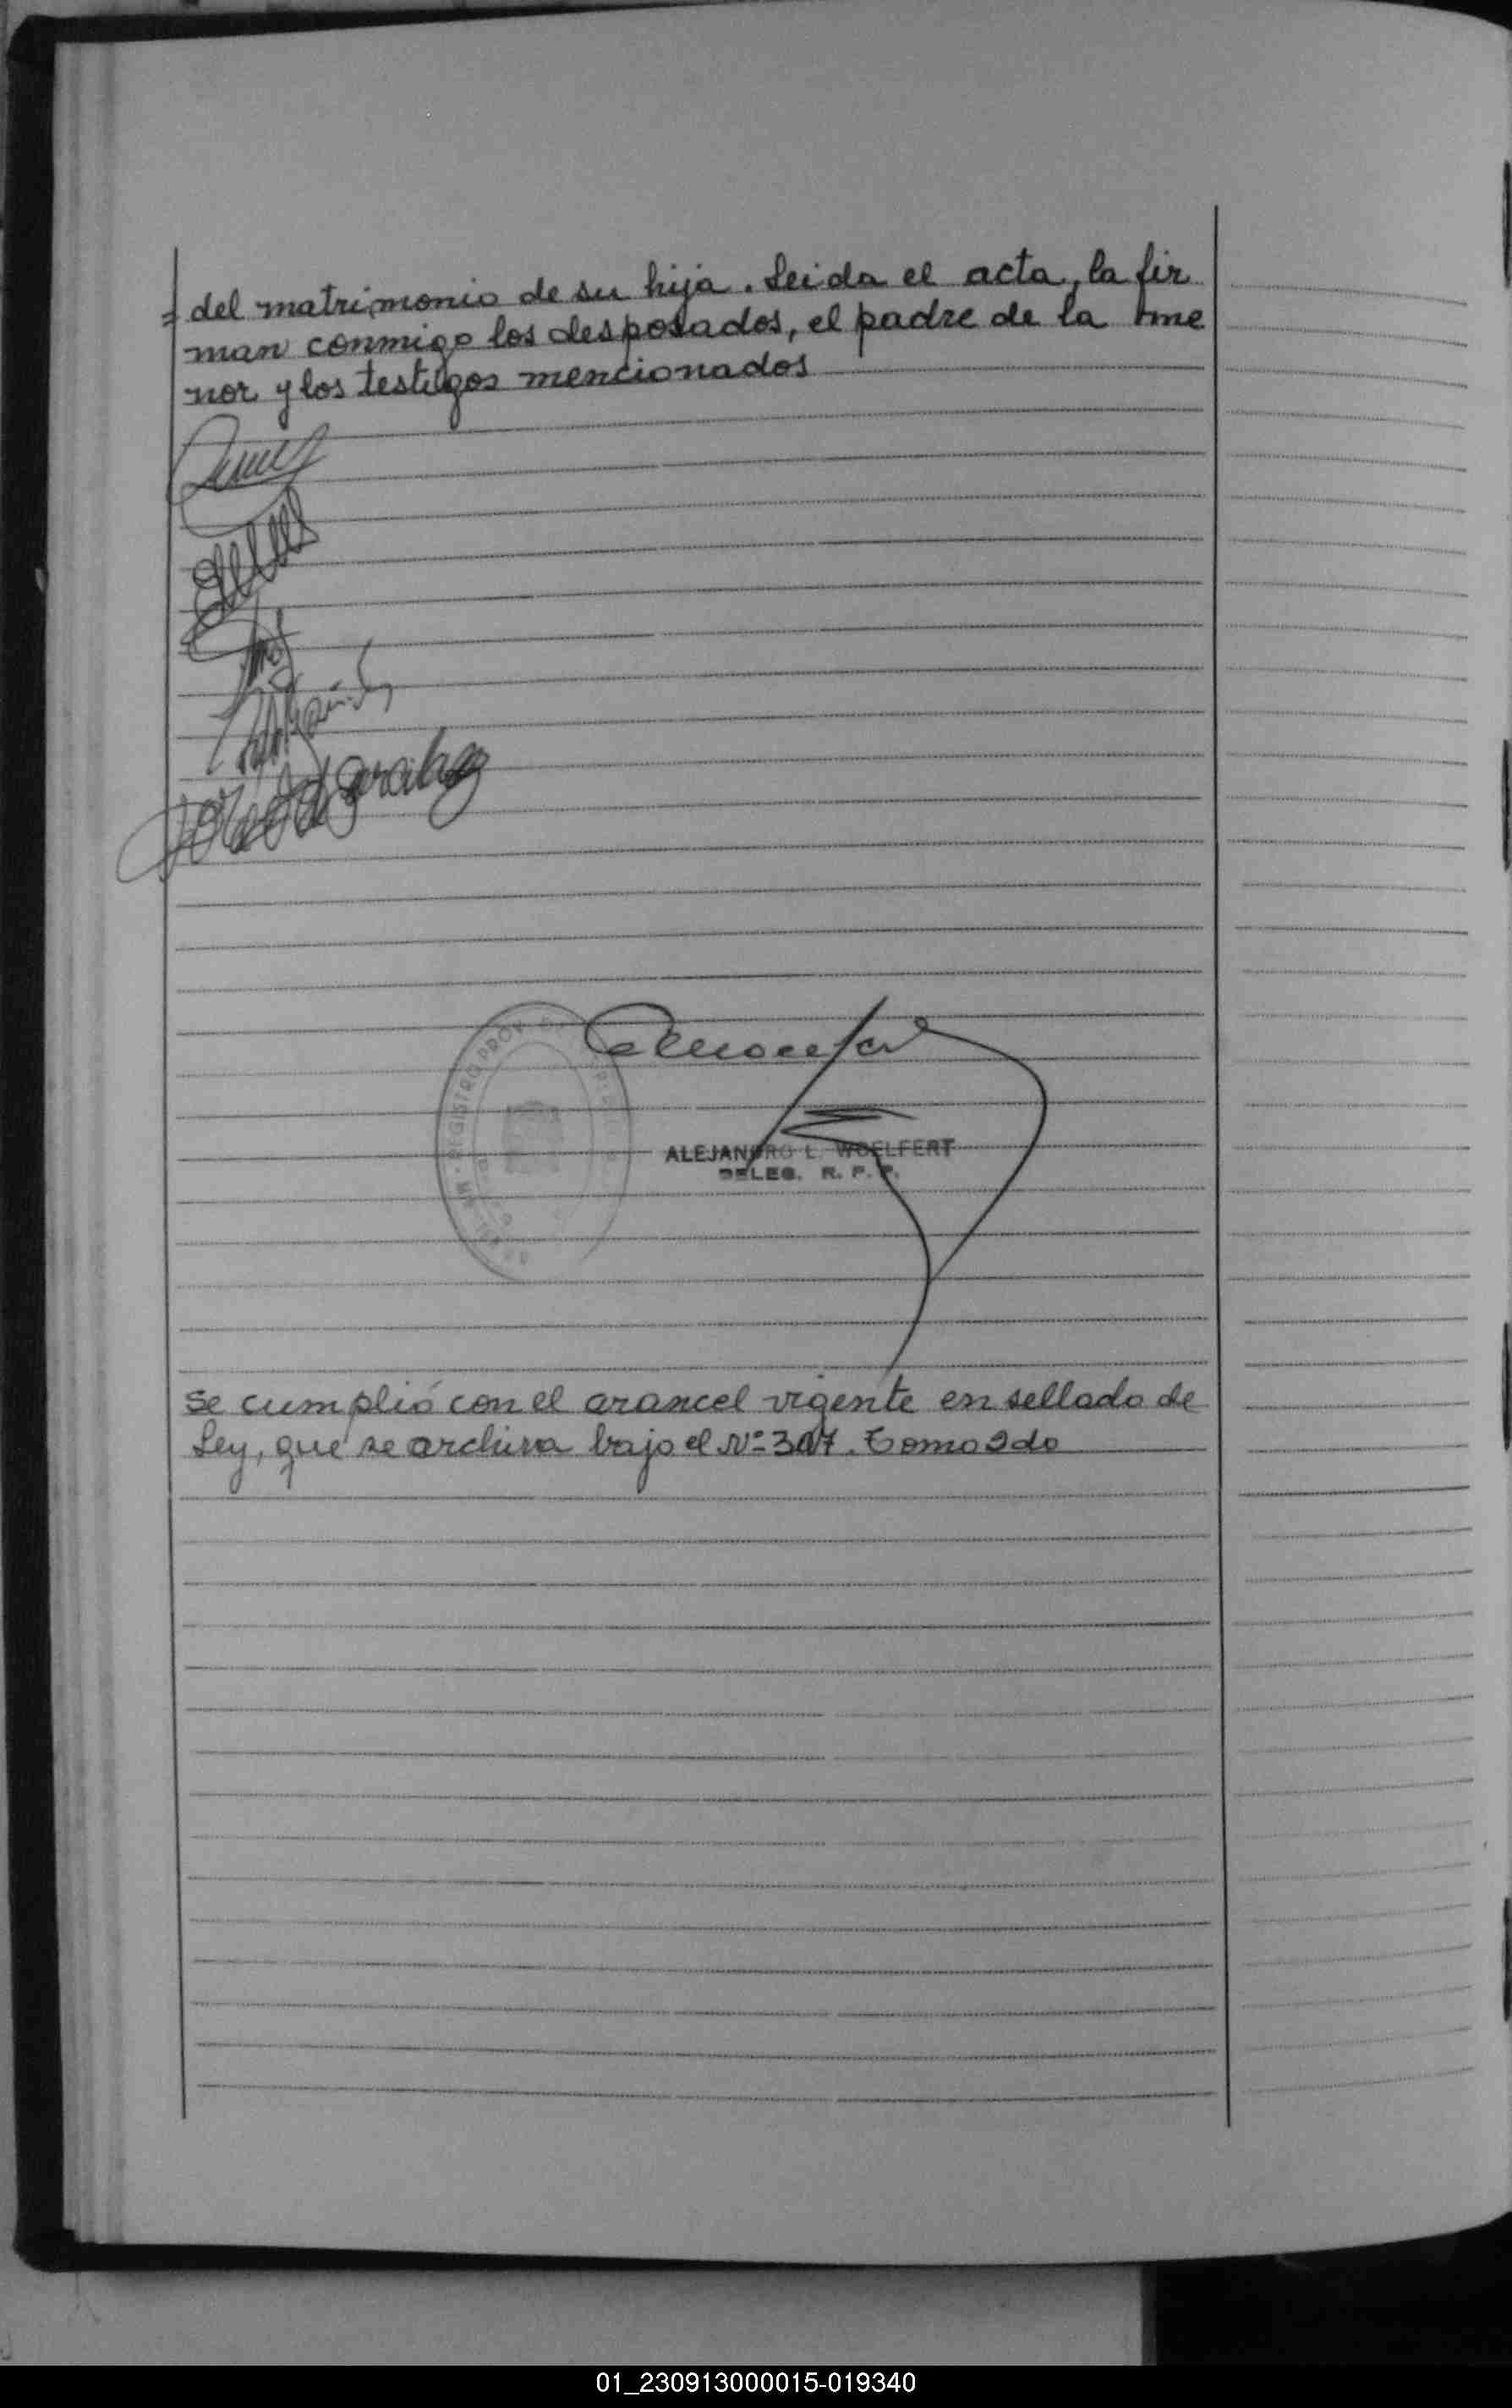 = del matrimonio de su hija. Leida el acta, la fir
man conmigo los desposados, el padre de la me
nor y los testigos mencionados
REGISTRO PROV
ALEJANDRO L. WOELFERT
DELEG. R. P. P.
se cumplió con el arancel vigente en sellado de
Ley, que se archiva bajo el Nº 307. Tomo 2do
01_230913000015-019340